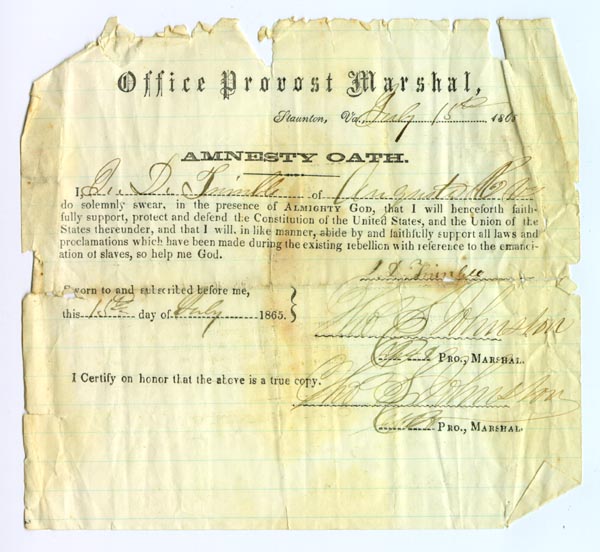 Office Provost Marshal,
Staunton, Va. July 15th 186
AMNESTY OATH.
I, D. Trimble of Augusta Co Va
do solemnly swear, in the presence of ALMIGHTY GOD, that I will henceforth faith-
fully support, protect and defend the Constitution of the United States, and the Union of the
States thereunder, and that I will, in like manner, abide by and faithfully support all laws and
proclamations which have been made during the existing rebellion with reference to the emanci-
ation of slaves, so help me God.
D Trimble
Sworn to and subscribed before me,
this 15th day of July 1865.
Tho S Johnston
Capt PRO., MARSHAL.
I Certify on honor that the above is a true copy.
Tho S Johnston
Capt PRO., MARSHAL.